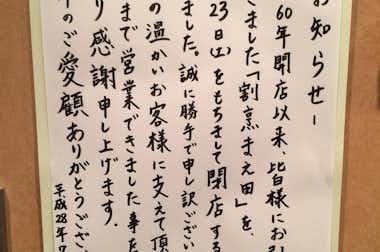 お知らせ
60年開店以来、皆様にお引
きました「割烹まえ田」を、
23日(土)をもちまして閉店する
ました。誠に勝手で申し訳ござい
の温かいお客様に支えて頂
まで営業できました事だ
り感謝申し上げます。
のご愛顧ありがとうござ
平成28年